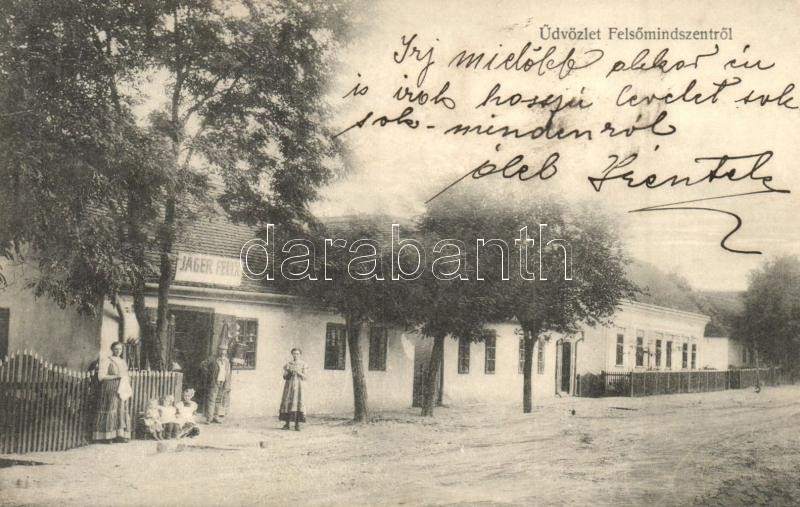 Üdvözlet Felsőmindszentről
Irj mielőbb akkor én
is irok hosszú levelet sok
sok-mindenről
ölel
JÄGER FELIX
darabanth